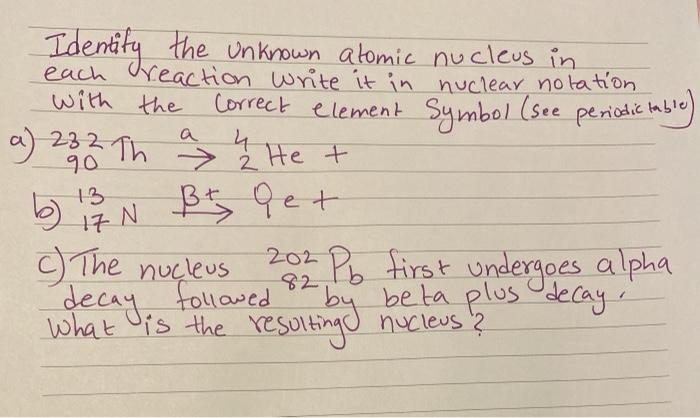 Identify the unknown atomic nucleus in
each reaction write it in nuclear notation
with the correct element Symbol (see periodic table)
a) 232 90 Th a → 4 2 He +
b) 13 17 N β+ → 0 e +
c) The nucleus 202 82 Pb first undergoes alpha
decay followed by beta plus decay.
What is the resulting nucleus?